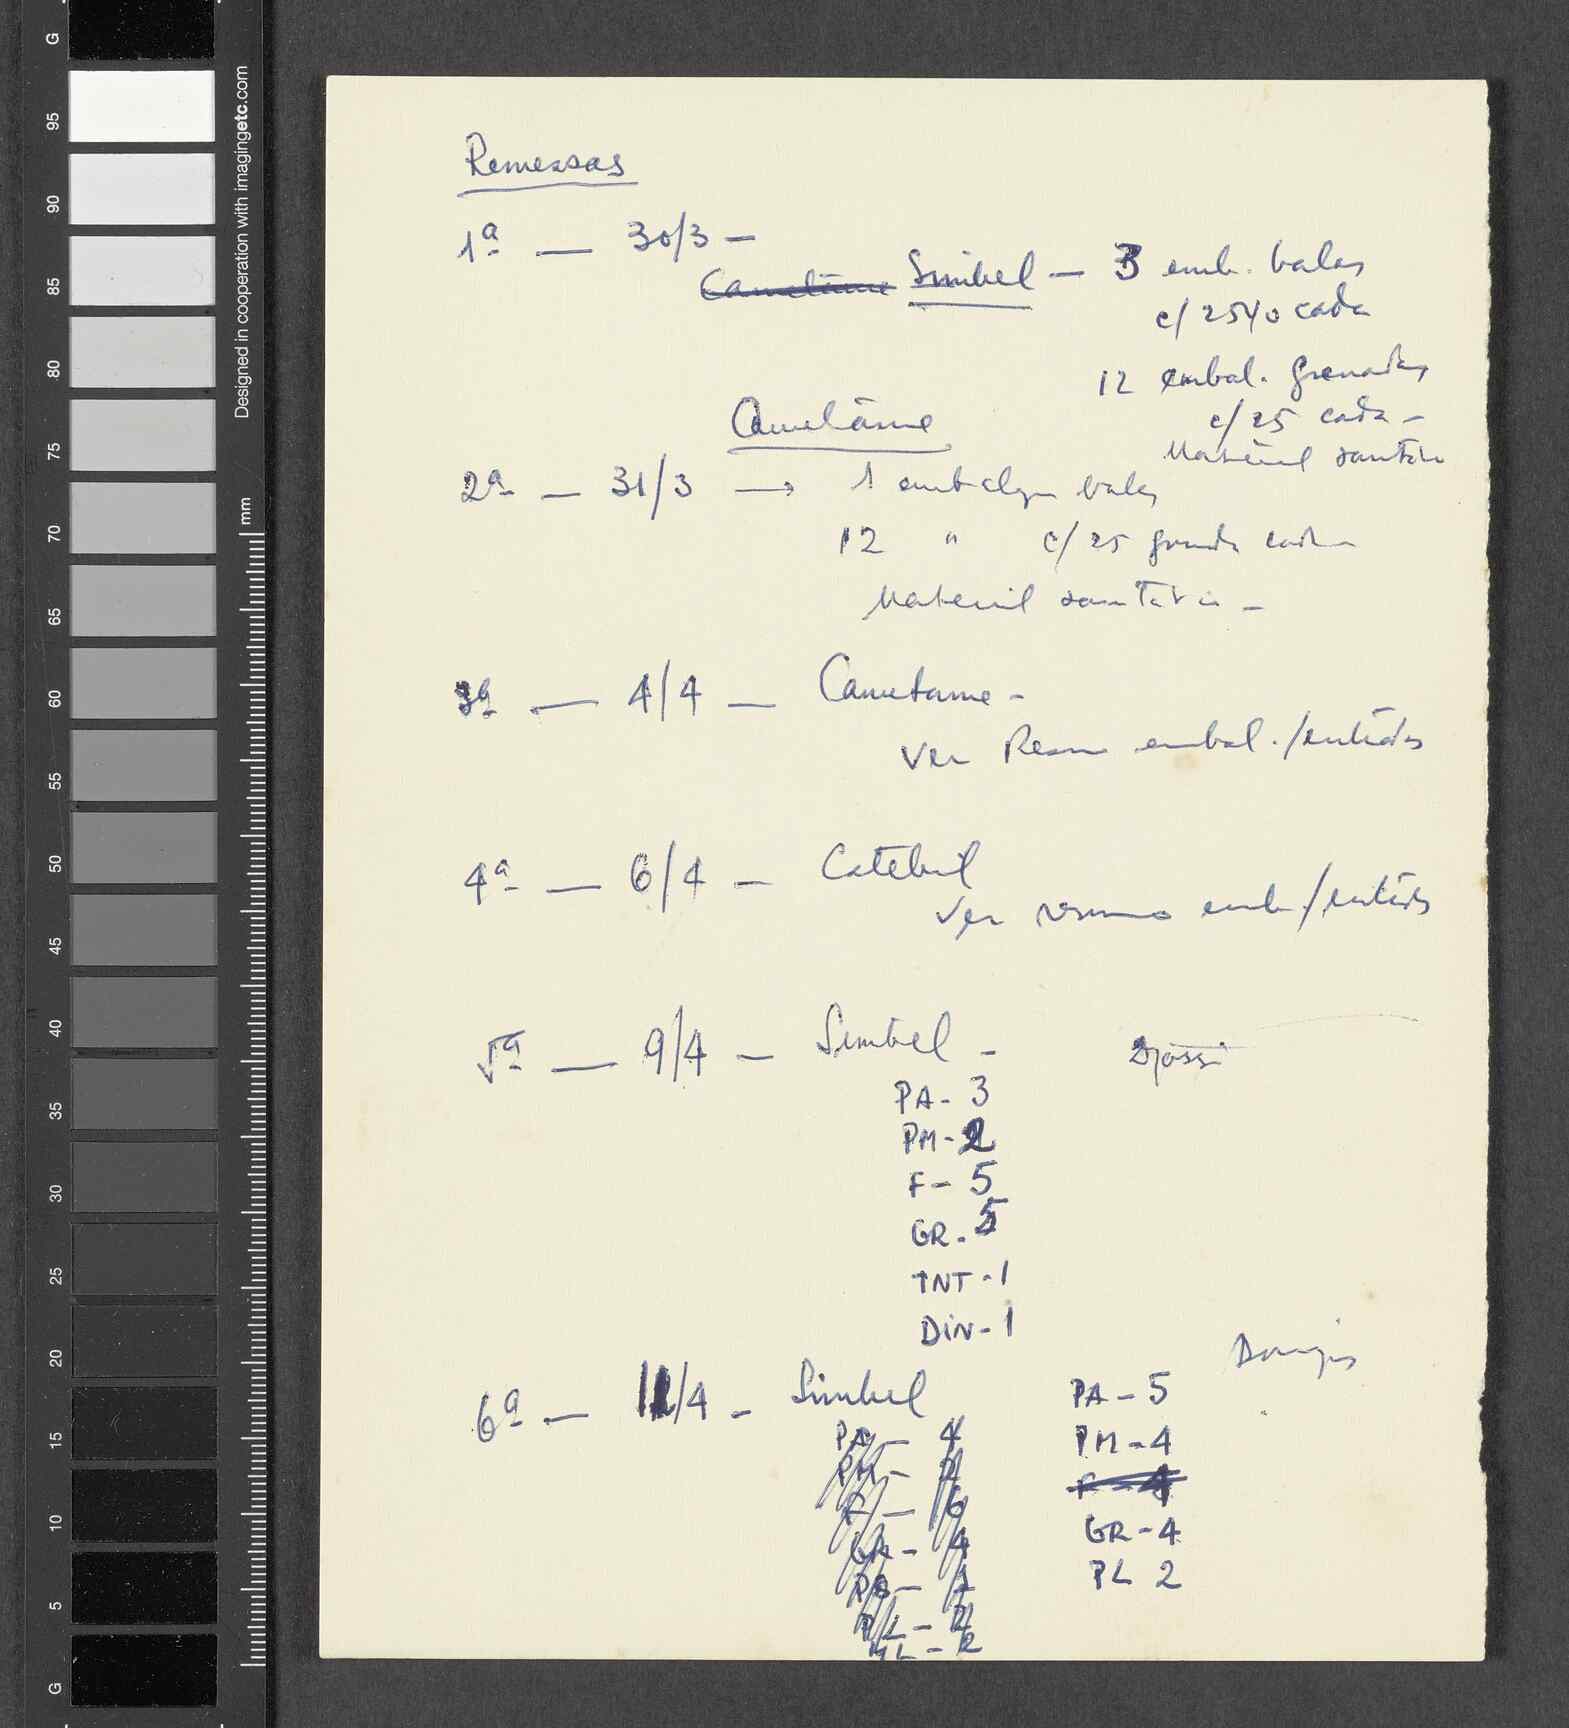 Remessas
1ª — 30/3 —
Simbel — 3 emb. balas
c/ 2540 cada
12 embal. granadas
c/25 cada —
Material sanitário
2ª — 31/3 → 1 embalagem balas
12 " c/ 25 granadas cada
Material sanitário —
3ª — 4/4 — Canetame -
Ver Resumo embal./saídas
4ª — 6/4 —
Ver resumo emb./saídas
5ª — 9/4 — Simbel -
PA - 3
PM - 2
F - 5
GR - 5
TNT - 1
DIN - 1
6ª — 11/4 - Simbel
PA — 4
PM — 2
F — 6
GR — 4
PL — 2
ML — 2
PA - 5
PM - 4
F - 4
GR - 4
PL 2
G
95
90
85
80
75
70
65
60
55
50
45
40
35
30
25
20
15
10
5
G
Designed in cooperation with imagingetc.com
mm